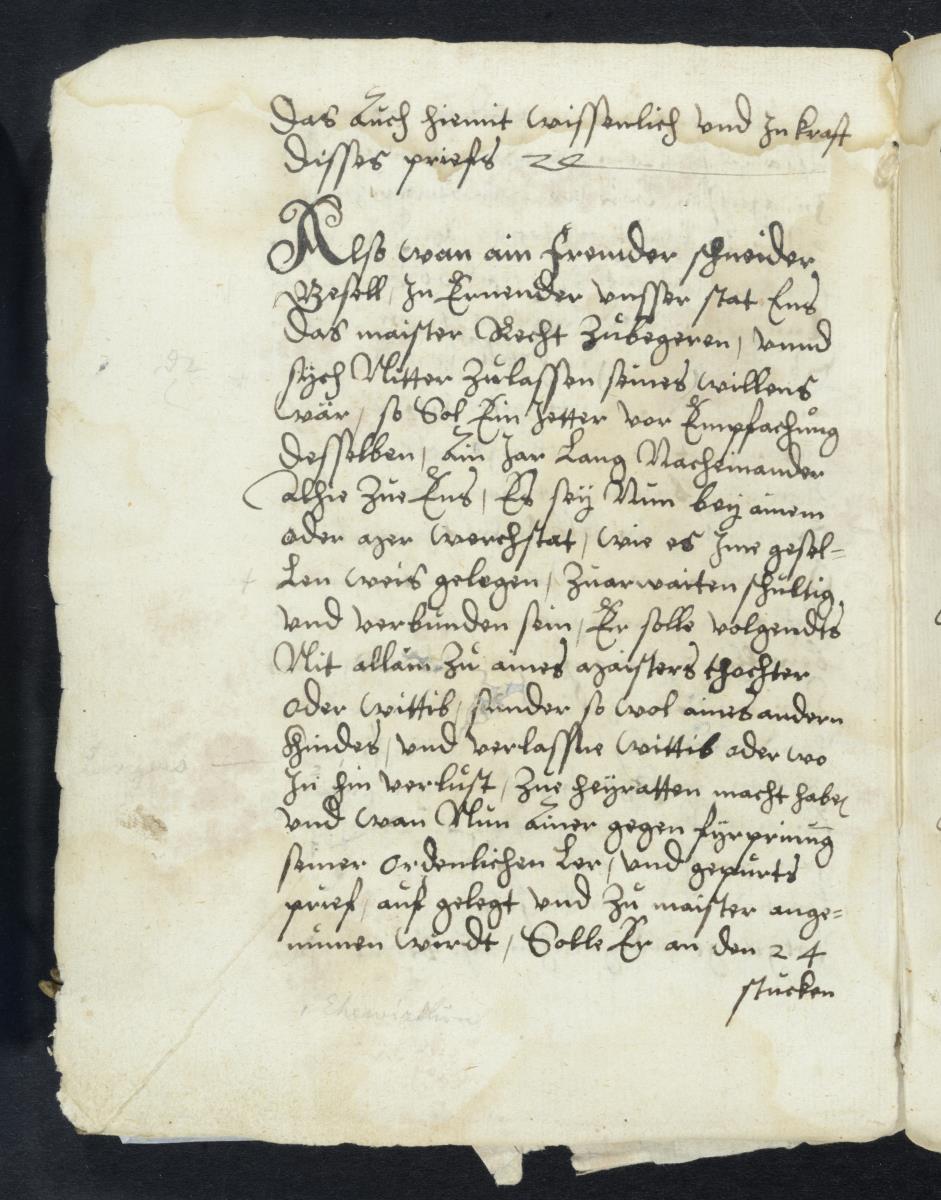 Das Auch hiemit wissenlich vnd In kraft
disses priefs
Also wan ain Fremder schneider
Gesell, In Ernender vnsser stat Ens
das maister Recht Zubegeren, vnnd
sÿch Nitter Zulassen seines willens
wär, so Sol Ein Jetter vor Empfachung
desselben, Ain Jar Lang Nacheinander
Alhie Zue Ens, Es seÿ Nun beÿ ainem
oder mer werchstat, wie es Ime gesel=
Len weis gelegen, Zuarwaiten schultig,
vnd verbunden sein, Er solle volgendts
Nit allain Zu aines maisters thochter
oder wittib, sunder so wol aines andern
Khindes, vnd verlassne wittib oder wo
In hin verlust, Zue heÿratten macht haben
vnd wan Nun Ainer gegen fÿrprinung
seiner ordenlichen Ler, vnd gepurts
prief, auf gelegt vnd Zu maister ange=
numen wirdt, Solle Er an den 24
stucken